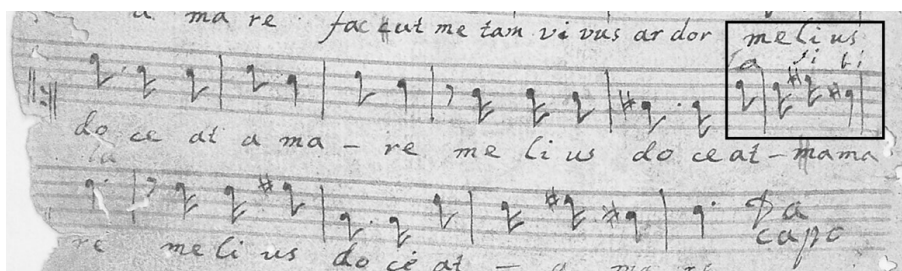 a ma re fac ut me tam vi vus ar dor melius
do ce at a ma - re me li us do ce at - mama
re me li us do ce at - a ma re
Da
capo